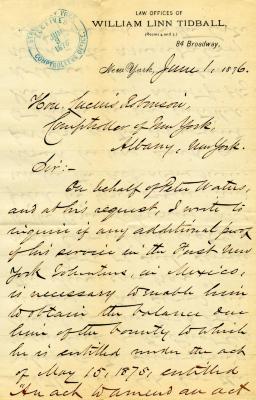 LAW OFFICES OF
WILLIAM LINN TIDBALL,
(Rooms 4 and 5.)
84 Broadway.
RECEIVED
JUN
1876
COMPTROLLER'S OFFICE
New York, June 1, 1876.
Hon. Lucius Robinson,
Comptroller of New York,
Albany, New York.
Sir:-
On behalf of Peter Waters,
and at his request, I write to
inquire if any additional proof
of his service in the First New
York Volunteers, in Mexico,
is necessary to enable him
to obtain the balance due
him of the bounty to which
he is entitled under the act
of May 15, 1875, entitled
"An act to amend an act